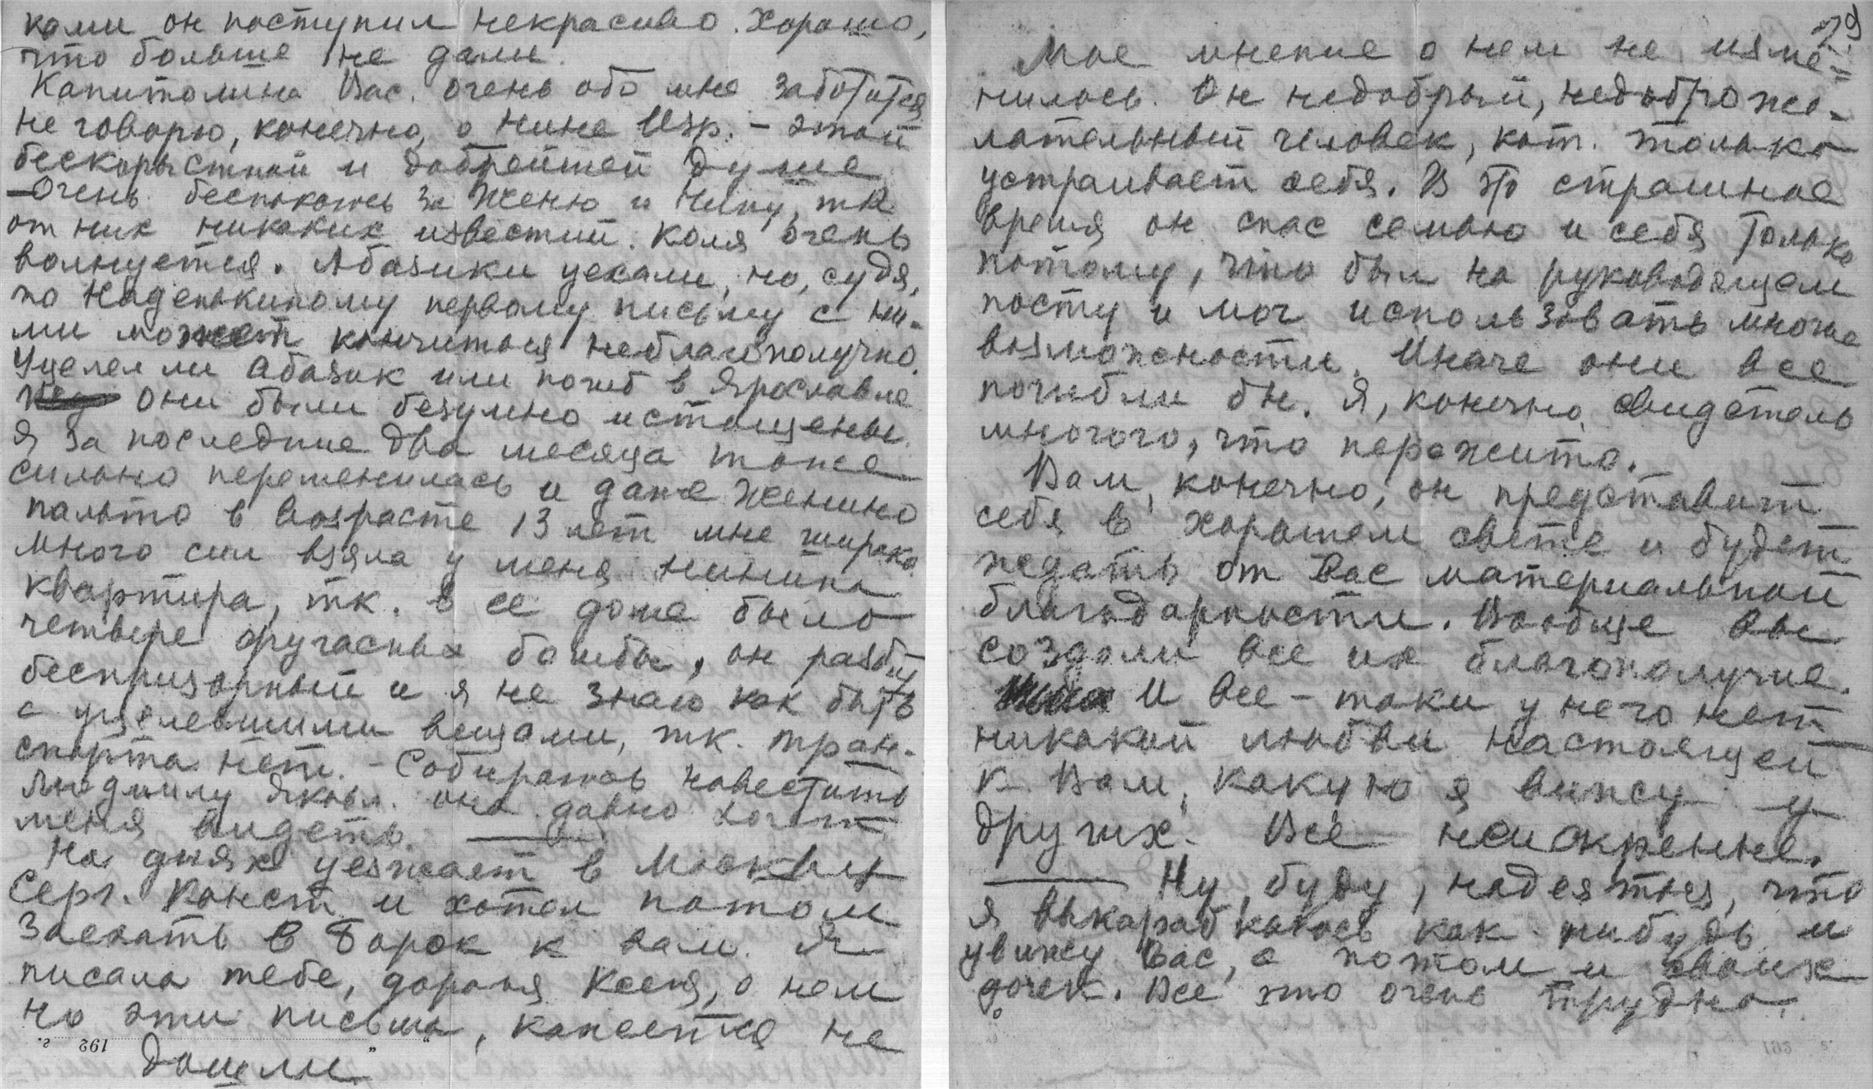 ками он поступил некрасиво. Хорошо,
что больше не дали.
Капитолина Вас. очень обо мне заботится
не говорю, конечно, о Нине Изр. – этой
бескорыстной и добрейшей душе
– Очень беспокоюсь за Женю и Нину, тк
от них никаких известий. Коля очень
волнуется. Абазики уехали, но, судя,
по Наденькиному первому письму с ни-
ми может кончиться неблагополучно.
Уцелел ли Абазик или погиб в Ярославле
Они были безумно истощены.
Я за последние два месяца тоже
сильно переменилась и даже Женино
пальто в возрасте 13 лет мне широко.
Много сил взяла у меня Нинина
квартира, тк. в ее доме было
четыре фугасных бомбы, он разбит
беспризорный и я не знаю как быть
с уцелевшими вещами, тк. тран-
спорта нет. – Собираюсь навестить
Людмилу Яковл. она давно хочет
меня видеть.
На днях уезжает в Москву
Серг. Конст и хотел потом
заехать в Борок к вам. Я
писала тебе, дорогая Ксеня, о нем
но эти письма, кажется не
дошли
192 г.
79
Мое мнение о нем не изме-
нилось. Он недобрый, недоброже-
лательный человек, кот. только
устраивает себя. В это страшное
время он спас семью и себя только
потому, что был на руководящем
посту и мог использовать многие
возможности. Иначе они все
погибли бы. Я, конечно, свидетель
многого, что пережито.
Вам, конечно, он представит
себя в хорошем свете и будет
ждать от Вас материальной
благодарности. Вообще Вы
создали все их благополучие.
И все-таки у него нет
никакой любви настоящей
к Вам, какую я вижу у
других. Всё неискренне.
Ну, буду, надеяться, что
я выкарабкаюсь как-нибудь и
увижу Вас, а потом и своих
дочек. Все это очень трудно.